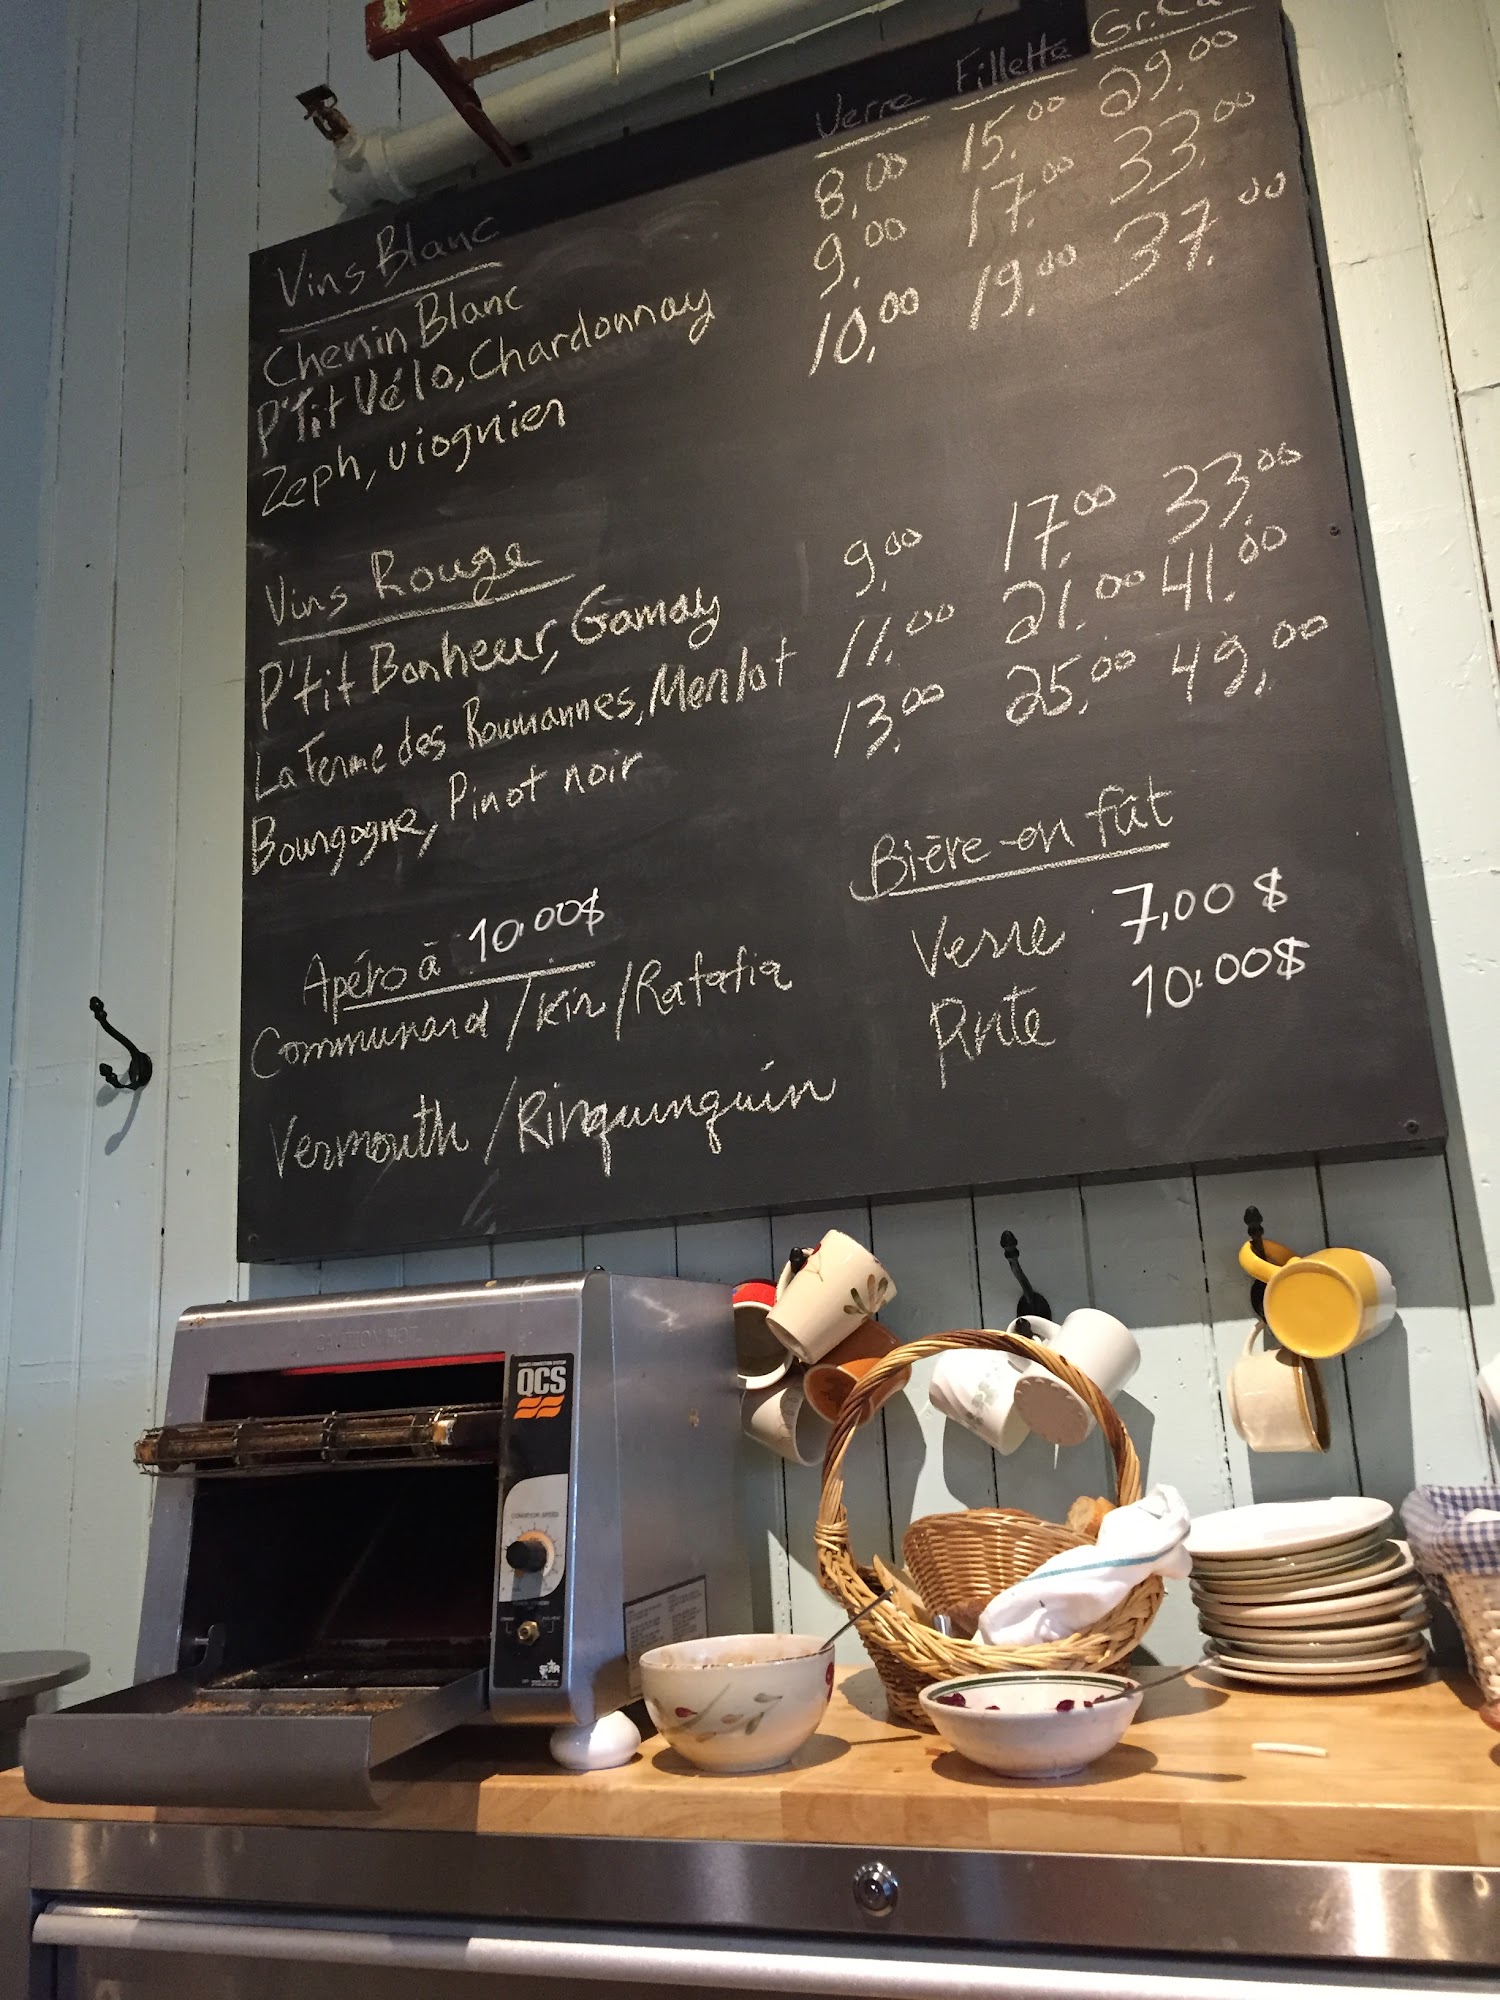 Verre Fillette Gr.Ca
Vins Blanc 8,00 15.00 29.00
Chenin Blanc 9.00 17.00 33.00
P'tit Vélo, Chardonnay 10,00 19.00 37.00
Zeph, viognier
Vins Rouge
P'tit Bonheur, Gamay 9.00 17.00 33.00
La Ferme des Roumannes, Merlot 11.00 21.00 41.00
Bourgogne, Pinot noir 13.00 25.00 49.00
Apéro à 10.00$
Communard / Kir / Ratafia
Vermouth / Rinquinquin
Bière en fût
Verre 7,00$
Pinte 10.00$
CAUTION HOT
QCS
CONVEYOR SPEED
STAR